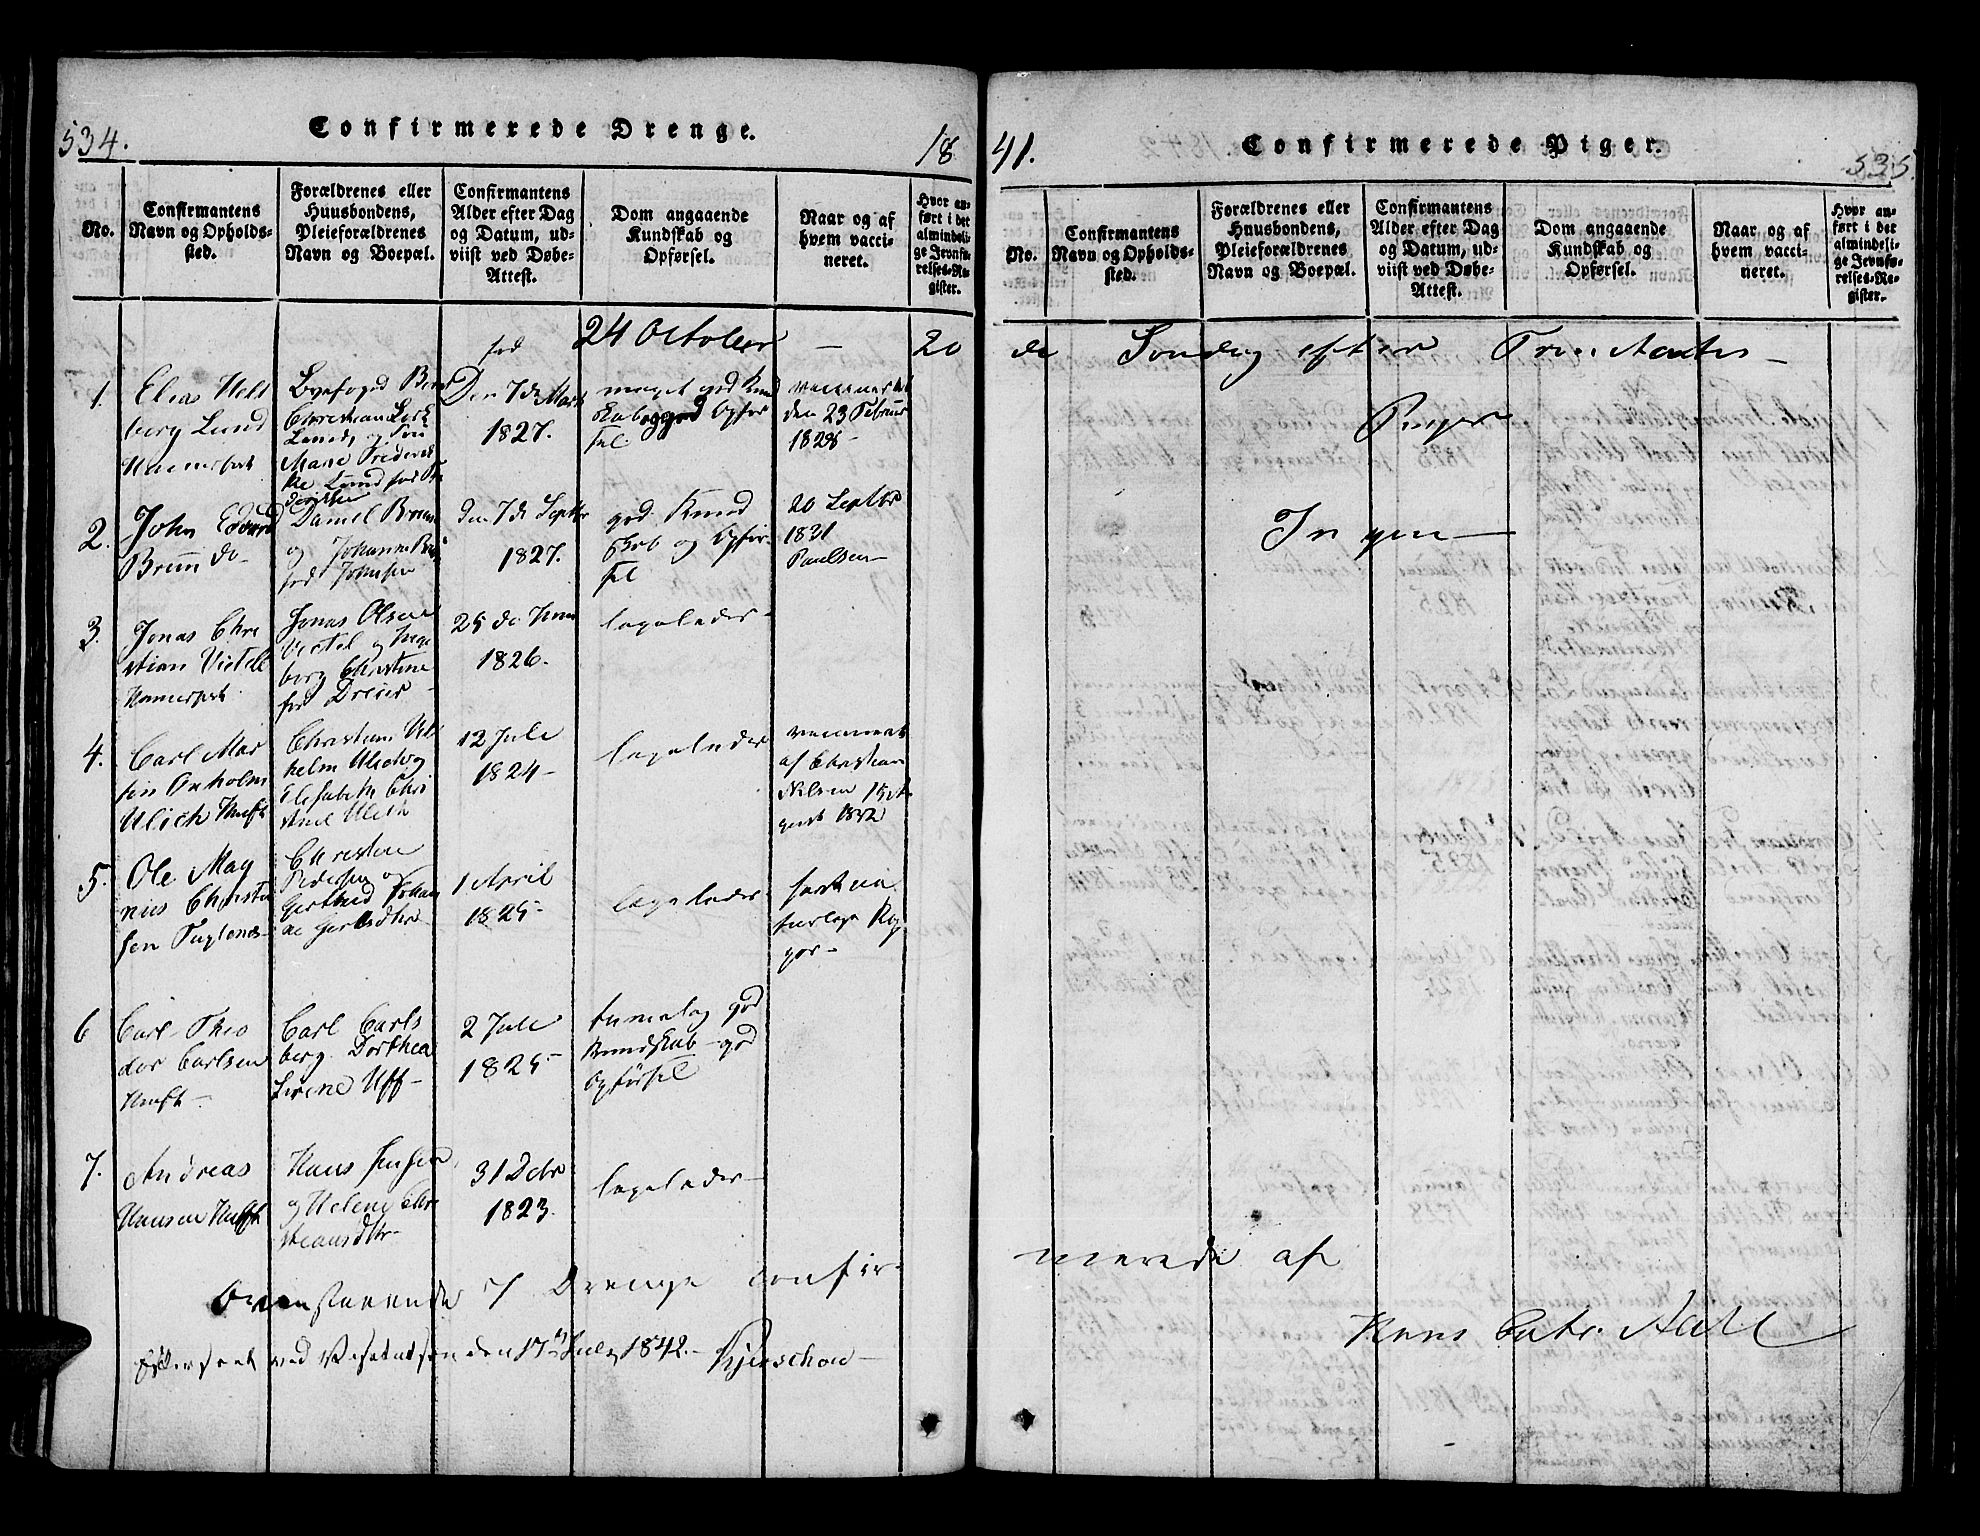 534.
Confirmerede Drenge.
18
No.
Confirmantens
Navn og Opholds-
sted.
Forældrenes eller
Huusbondens,
Pleieforældrenes
Navn og Boepæl.
Confirmantens
Alder efter Dag
og Datum, ud-
viist ved Døbe-
Attest.
Dom angaaende
Kundskab og
Opførsel.
Naar og af
hvem vacci-
neret.
Hvor an-
ført i det
almindeli-
ge Jevnfø-
relses-Re-
gister.
24 October — 20
1.
Elias Helt
berg Lund
Hammerfest
Byefoged Bernt
Christian Lerk
Lund, og
Marie Frederik
ke Lund fød
fød
Den 7de Marts
1827.
meget god Kund
skab og god Opfør
sel
vaccineret
den 23 Februar
1828-
2.
John Edvard
Bruun do-
Daniel Bruun
og Johanne
fød Johnsen
den 7de Septbr
1827.
god Kund
skab og Opfør-
sel
20 Septbr
1831
Paulsen
3.
Jonas Chri
stian Vietel
Hamerfest
Jonas Olsen
Vietel og Inge
borg Christine
fød Dreier
25 do Juni
1826.
ligeledes-
4.
Carl Mar
tin Anholm
Ulich Hmfst
Christian Vil
helm Ulich og
Elisabeth Chri
stine Ulich
12 Juli
1824-
ligeledes
vaccineret
af Christian
Nilsen 15 Au
gust 1832
5.
Ole Mag
nus Christen
sen Fuglenes-
Christen
Pedersen og
Gertrud Johan
ne
1 April
1825-
ligeledes
havt na
turlige Kop
per-
6
Carl Theo
dor Carlsen
Hmfst-
Carl Carls
berg. Dorthea
Sirene Uff-
2 Juli
1825-
temelig god
Kundskab-god
Opførsel
7.
Andreas
Hansen Hmfst
Hans Jensen
og Helene Chri
stiansdtr-
31 Debr
1823.
ligeledes-
Ovenstaaende 7 Drenge confir-
Efterseet ved Visitatsen den 17de July 1842.- Kjerschow-
41.
Confirmerede Piger.
535.
No.
Confirmantens
Navn og Opholds-
sted.
Forældrenes eller
Huusbondens,
Pleieforældrenes
Navn og Boepæl.
Confirmantens
Alder efter Dag
og Datum, ud-
viist ved Døbe-
Attest.
Dom angaaende
Kundskab og
Opførsel.
Naar og af
hvem vacci-
neret.
Hvor an-
ført i det
almindeli-
ge Jevnfø-
relses-Re-
gister.
de Søndag efter Trinitatis-
Piger
Ingen-
merede af
Hans Catr. Aall